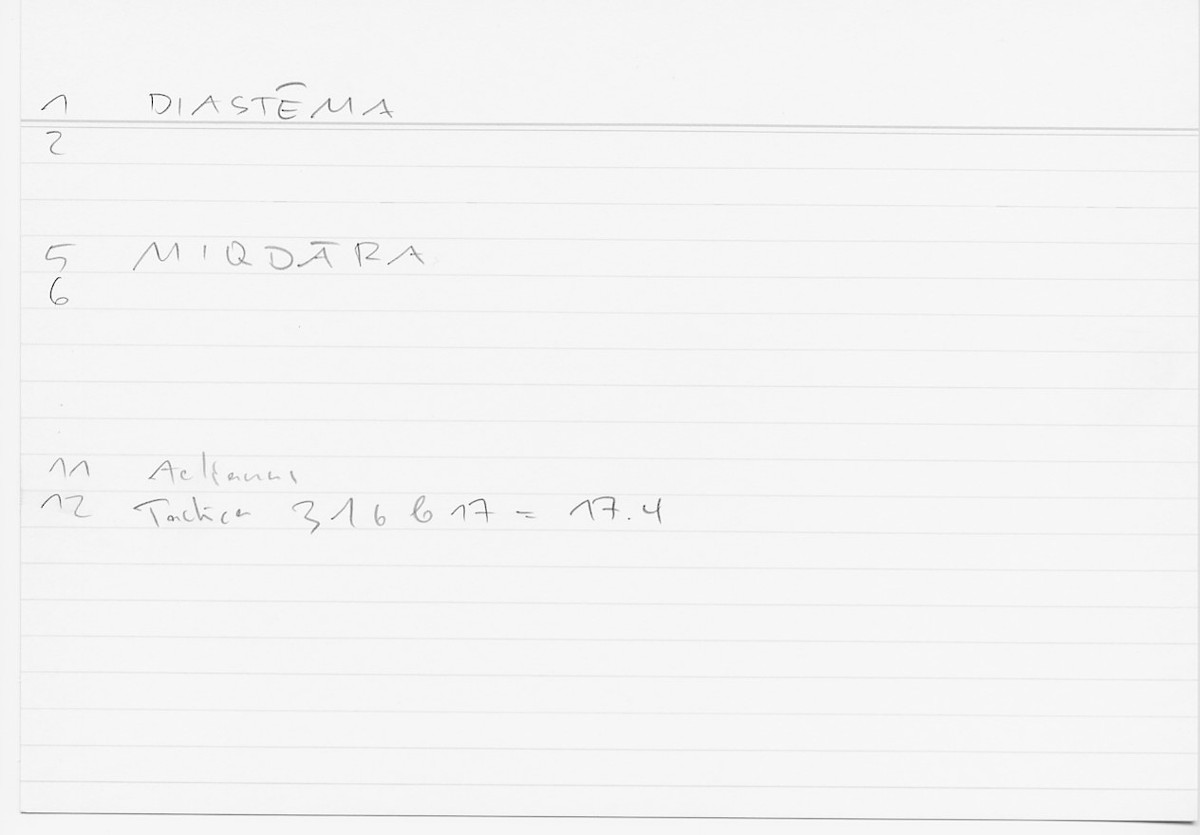 1 DIASTĒMA
2
5 MIQDĀRA
6
11 Aelianus
12 Tactica 316 b 17 = 17.4